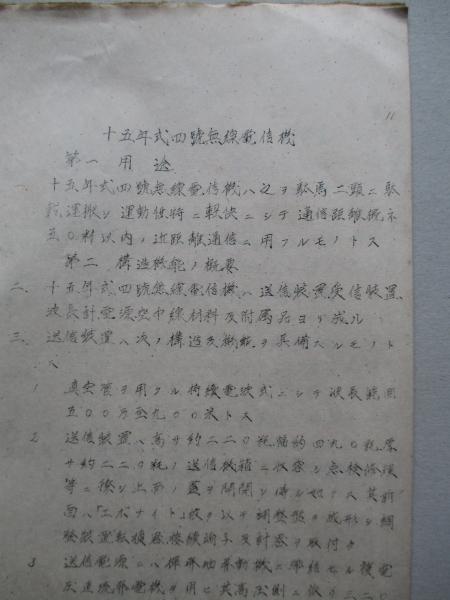 11
十五年式四號無線電信機
第一 用途
十五年式四號無線電信機ハ之ヲ駄馬二頭ニ駄
運搬シ運動性特ニ軽快ニシテ通信距離概ネ
五〇粁以内ノ近距離通信ニ用フルモノトス
第二 構造機能ノ概要
二、十五年式四號無線電信機ハ送信装置受信装置
波長計電源空中線材料及附属品ヨリ成ル
三、送信装置ハ次ノ構造及機能ヲ具備スルモノト
ス
1 真空管ヲ用クル持續電波式ニシテ波長範囲
五〇〇乃至九〇〇米トス
2 送信装置ハ高サ約二二〇粍幅約四九〇粍厚
サ約二二〇粍ノ送信機箱ニ収容シ点検修理
等ニ際シ上面ノ蓋ヲ開閉シ得ル如クス其前
面ハ「エボナイト」板ヲ以テ調整盤ヲ成形シ
接續端子及計器ヲ取付ク
3 送信電源ニハ
直流発電機ヲ用ヒ其高圧側ニ